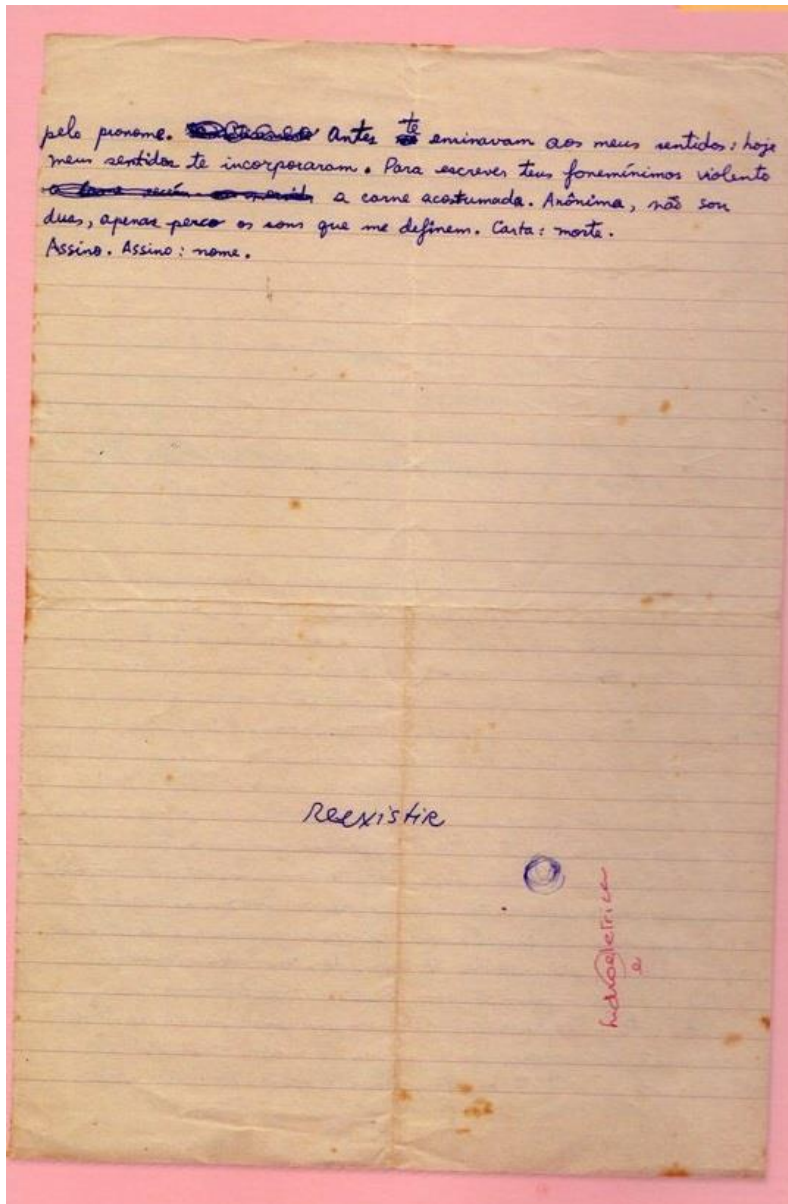 pelo pronome. Antes te ensinavam aos meus sentidos: hoje
meus sentidos te incorporaram. Para escrever teus fonemínimos violento
a carne acostumada. Anônima, não sou
duas, apenas perco os sons que me definem. Carta: morte.
Assino. Assino: nome.
Reexistir
hidroeletrica
e